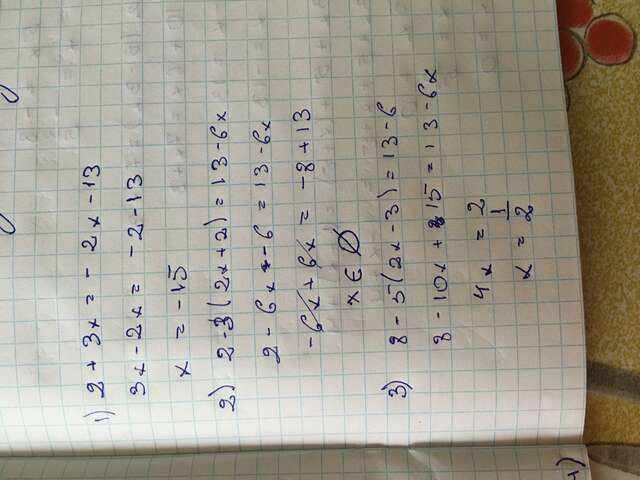 1) 2 + 3x = - 2x - 13
3x - 2x = - 2 - 13
x = - 15
2) 2 - 3 (2x + 2) = 13 - 6x
2 - 6x - 6 = 13 - 6x
- 6x + 6x = - 8 + 13
x ∈ ∅
3) 8 - 5 (2x - 3) = 13 - 6
8 - 10x + 15 = 13 - 6x
4x = 2
x = 1/2